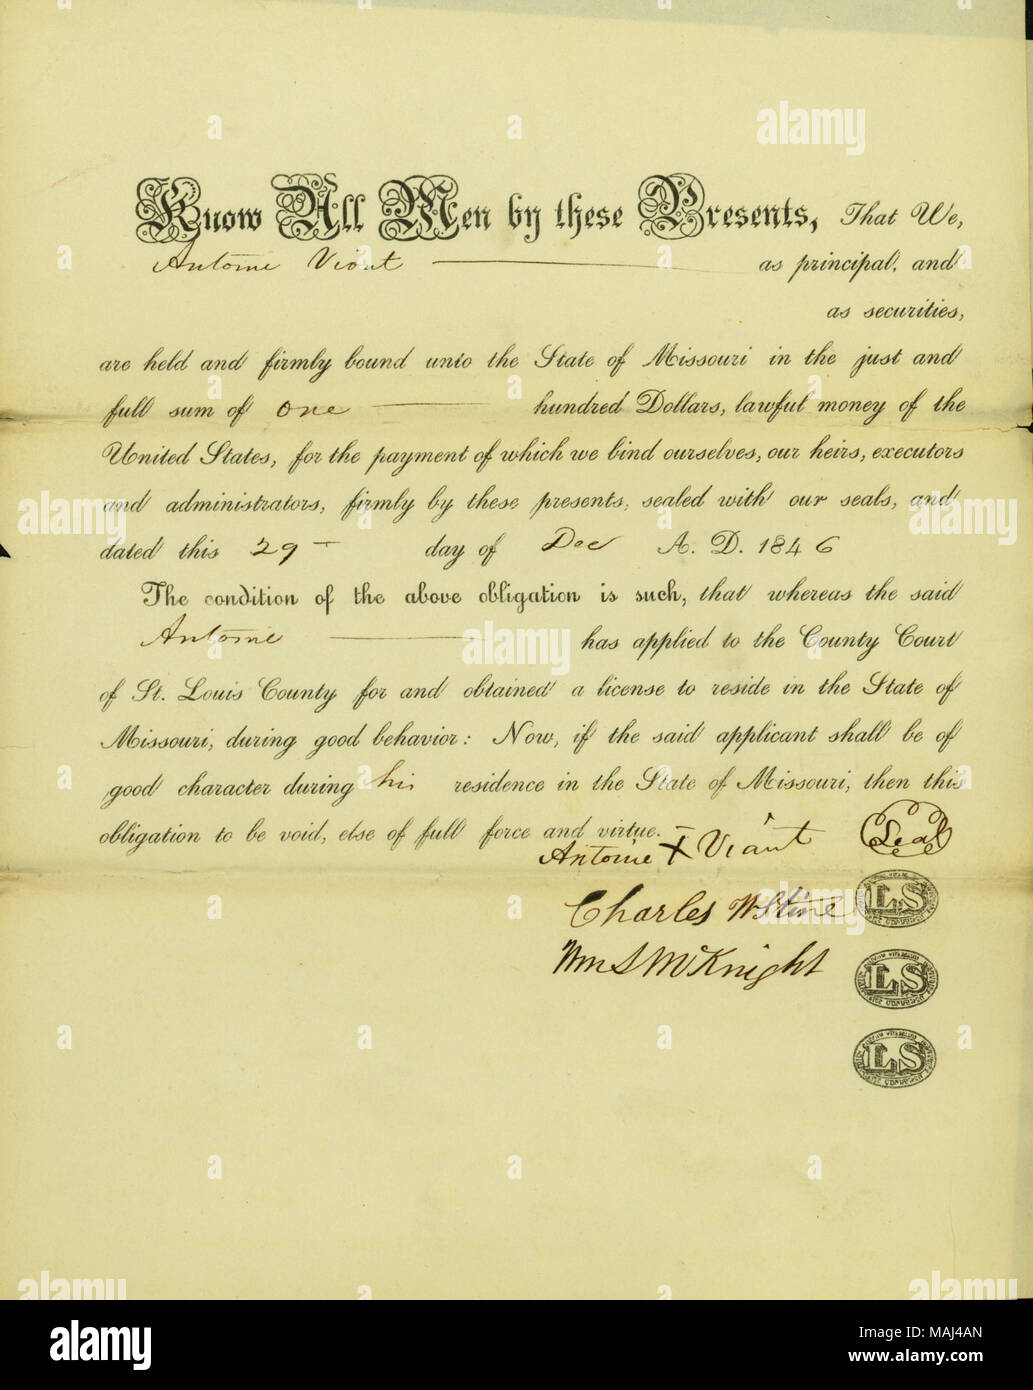 Know All Men by these Presents, That We,
Antoine Viaut as principal, and
as securities,
are held and firmly bound unto the State of Missouri in the just and
full sum of one hundred Dollars, lawful money of the
United States, for the payment of which we bind ourselves, our heirs, executors
and administrators, firmly by these presents, sealed with our seals, and
dated this 29 day of Dec A. D. 1846
The condition of the above obligation is such, that whereas the said
Antoine has applied to the County Court
of St. Louis County for and obtained a license to reside in the State of
Missouri, during good behavior: Now, if the said applicant shall be of
good character during his residence in the State of Missouri, then this
obligation to be void, else of full force and virtue.
Antoine X Viaut Seal
Charles W Stine LS
Wm S McKnight LS
LS
alamy
Image ID: MAJ4AN
www.alamy.com